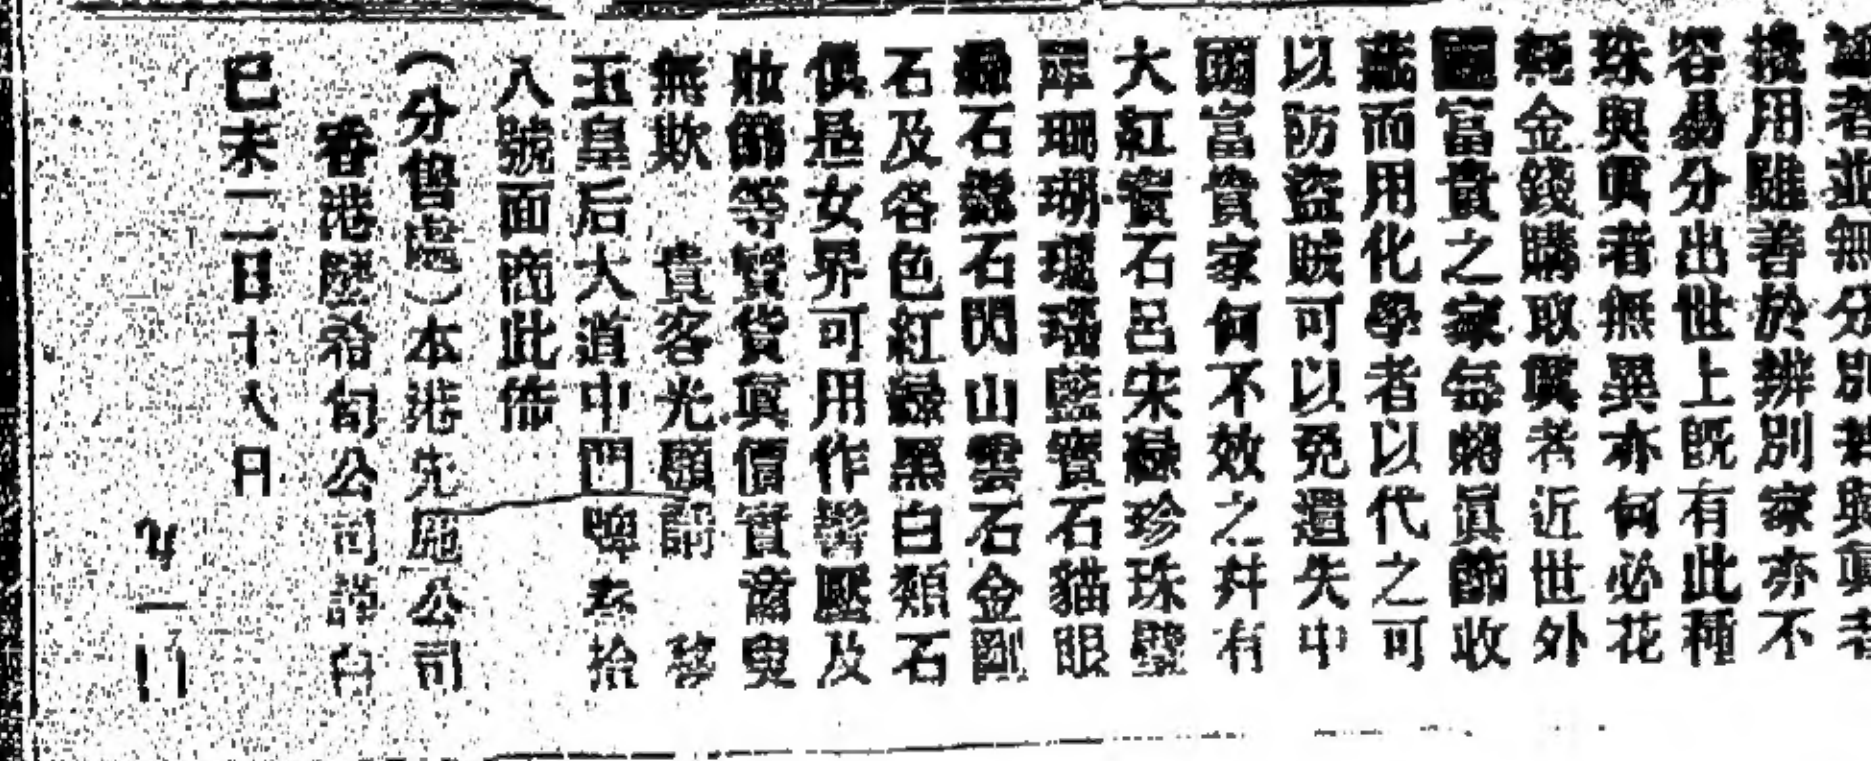 者並無分別若與眞者
換用雖善於辨別家亦不
容易分出世上旣有此種
珠與眞者無異亦何必花
金錢購取眞者近世外
國富貴之家每將眞飾收
藏而用化學者以代之可
以防盜賊可以免遺失中
國富貴家何不效之幷有
大紅寶石呂宋綠珍珠璧
犀珊瑚瑪瑙藍寶石貓眼
綠石鑽石閃山雲石金剛
石及各色紅綠黑白類石
俱是女界可用作髻壓及
妝飾等寶貨眞價實童叟
無欺　貴客光顧請　移
玉皇后大道中門啤叁拾
八號面商此佈
(分售處)本港先施公司
香港公司謹白
己未二月十八日